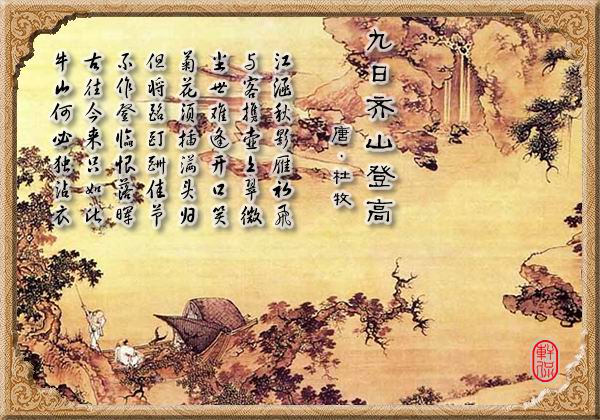 九日齐山登高
唐·杜牧
江涵秋影雁初飞
与客携壶上翠微
尘世难逢开口笑
菊花须插满头归
但将酩酊酬佳节
不作登临恨落晖
古往今来只如此
牛山何必独沾衣